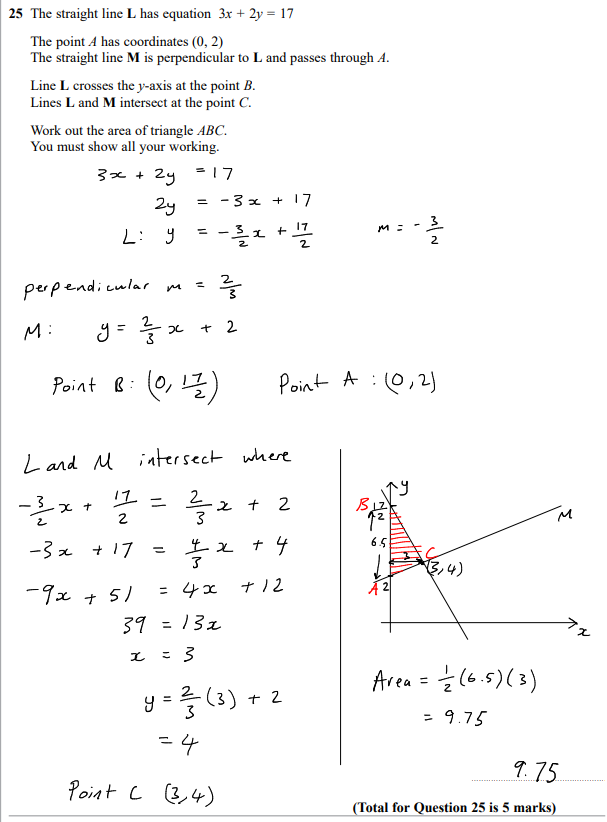 25 The straight line L has equation 3x + 2y = 17
The point A has coordinates (0, 2)
The straight line M is perpendicular to L and passes through A.
Line L crosses the y-axis at the point B.
Lines L and M intersect at the point C.
Work out the area of triangle ABC.
You must show all your working.
3x + 2y = 17
2y = -3x + 17
L: y = -3/2 x + 17/2 m = -3/2
perpendicular m = 2/3
M: y = 2/3 x + 2
Point B: (0, 17/2) Point A : (0,2)
L and M intersect where
-3/2 x + 17/2 = 2/3 x + 2
-3x + 17 = 4/3 x + 4
-9x + 51 = 4x + 12
39 = 13x
x = 3
y = 2/3 (3) + 2
= 4
Point C (3,4)
y
B 17/2
M
6.5
3
C
(3,4)
A 2
x
Area = 1/2 (6.5)(3)
= 9.75
9.75
(Total for Question 25 is 5 marks)